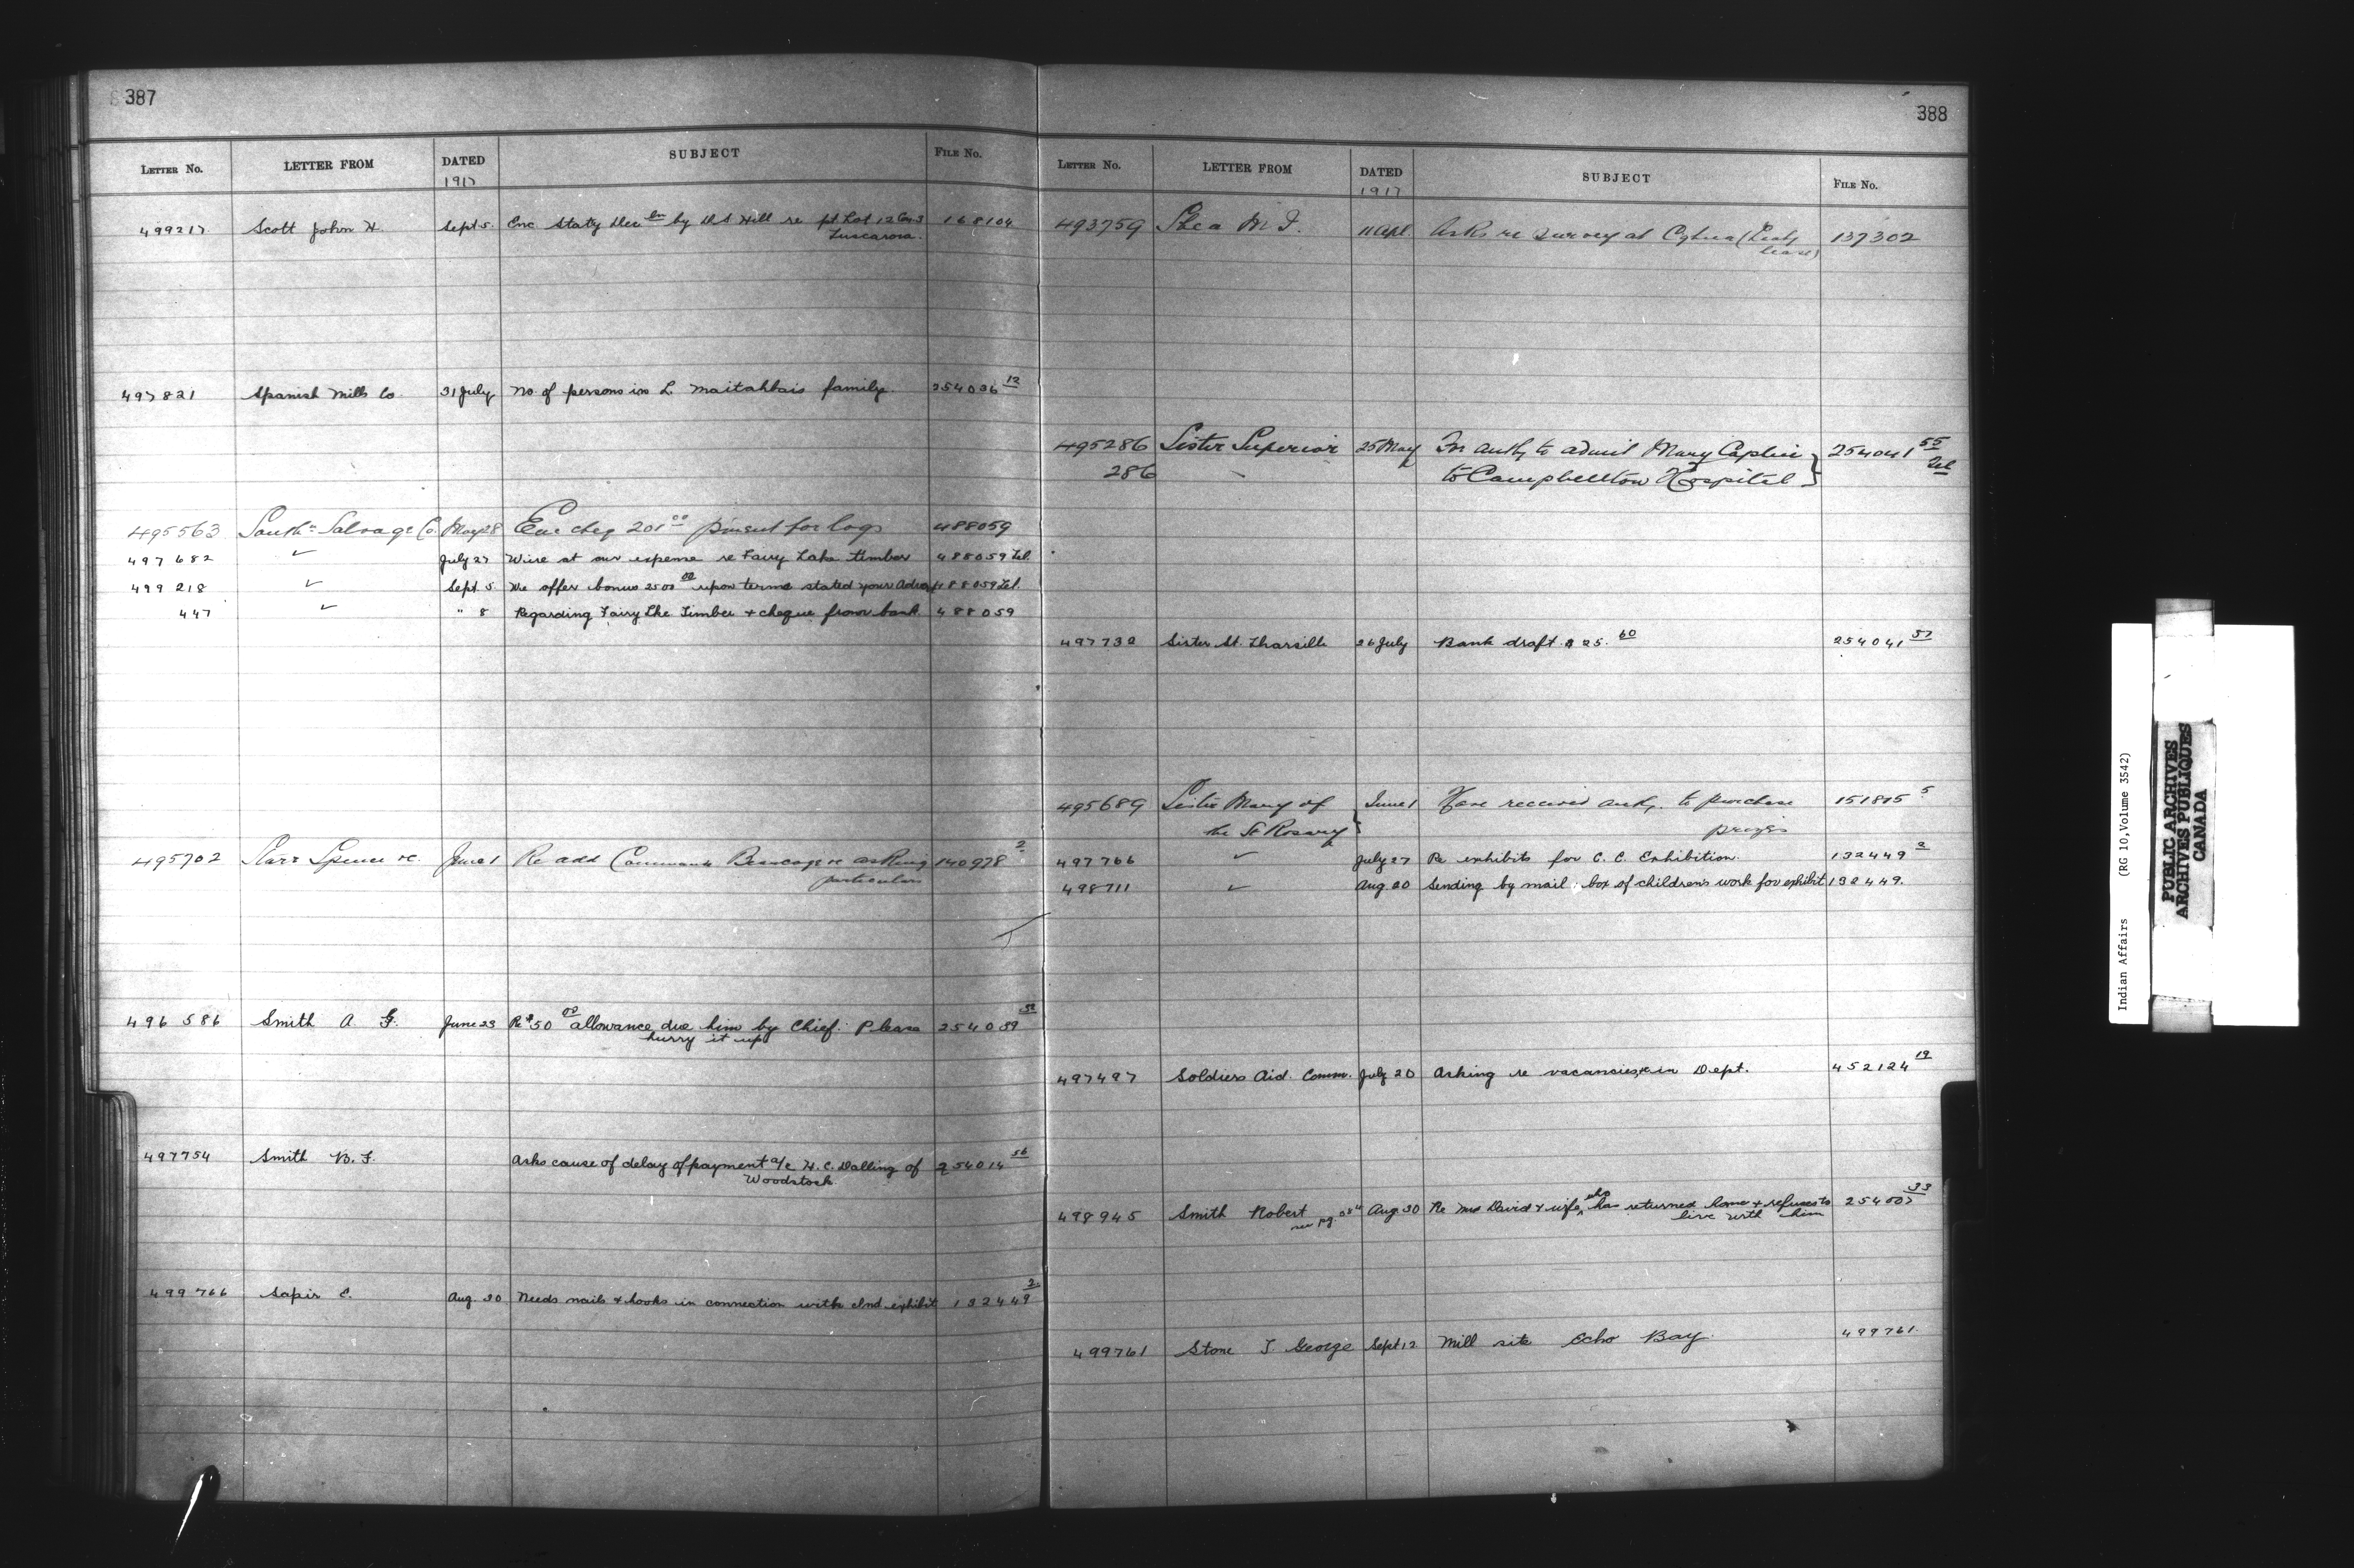 387
LETTER NO. LETTER FROM DATED SUBJECT FILE NO.
1917
499217 Scott John H. Sept 5. Enc Staty Decln by H S Hill re pt Lot 12 Con 3 168104
Tuscarora.
497821 Spanish Mills Co. 31 July No. of persons in L. family. 254036 12
495563 South Salvage Co. May 28 Enc cheq 201 00 for logs 488059
497682 ✓ July 27 Wire at our expense re Fairy Lake timber 488059 Tel.
499218 ✓ Sept. 5 We offer bonus 2500 00 upon terms stated your 488059 Tel.
447 ✓ " 8 Regarding Fairy Lke Timber + cheque from bank. 488059
495702 Starr Spence &c. June 1 Re add asking 140978 2
particulars
496586 Smith A. G. June 23 Re $50 00 allowance due him by Chief. Please 254039
hurry it up
497754 Smith B. F. Asks cause of delay of payment a/c H. C. Dalling of 254014 56
Woodstock
499766 Sapir E. Aug. 30 Needs nails & hooks in connection with Ind exhibit 132449 2
388
LETTER NO. LETTER FROM DATED SUBJECT FILE NO.
1917
493759 Shea M J. 11 Apl. Asks re survey at 137302
lease)
495286 Sister Superior 25 May For authy to admit Mary Caplin 254041 55
286 to Campbellton Hospital } Tel
Sister St. 26 July Bank draft $25. 60 254041 57
495689 Sister Mary of June 1 Have received authy. to purchase 151815 5
the St Rosary } prizes
497766 ✓ July 27 Re exhibits for C. C. Exhibition. 132449 2
498711 ✓ Aug 20 Sending by mail box of childrens work for exhibit 132449.
497497 Soldiers Aid. Comm. July 20 Asking re vacancies &c in Dept. 452124 19
498945 Smith Robert Aug 30 Re Mrs David & wife, who has returned home & refuses to 254007 33
see pg. live with him
499761 Stone J. George Sept 12 Mill site Echo Bay. 499761
Indian Affairs (RG 10, Volume 3542)
PUBLIC ARCHIVES
ARCHIVES PUBLIQUES
CANADA